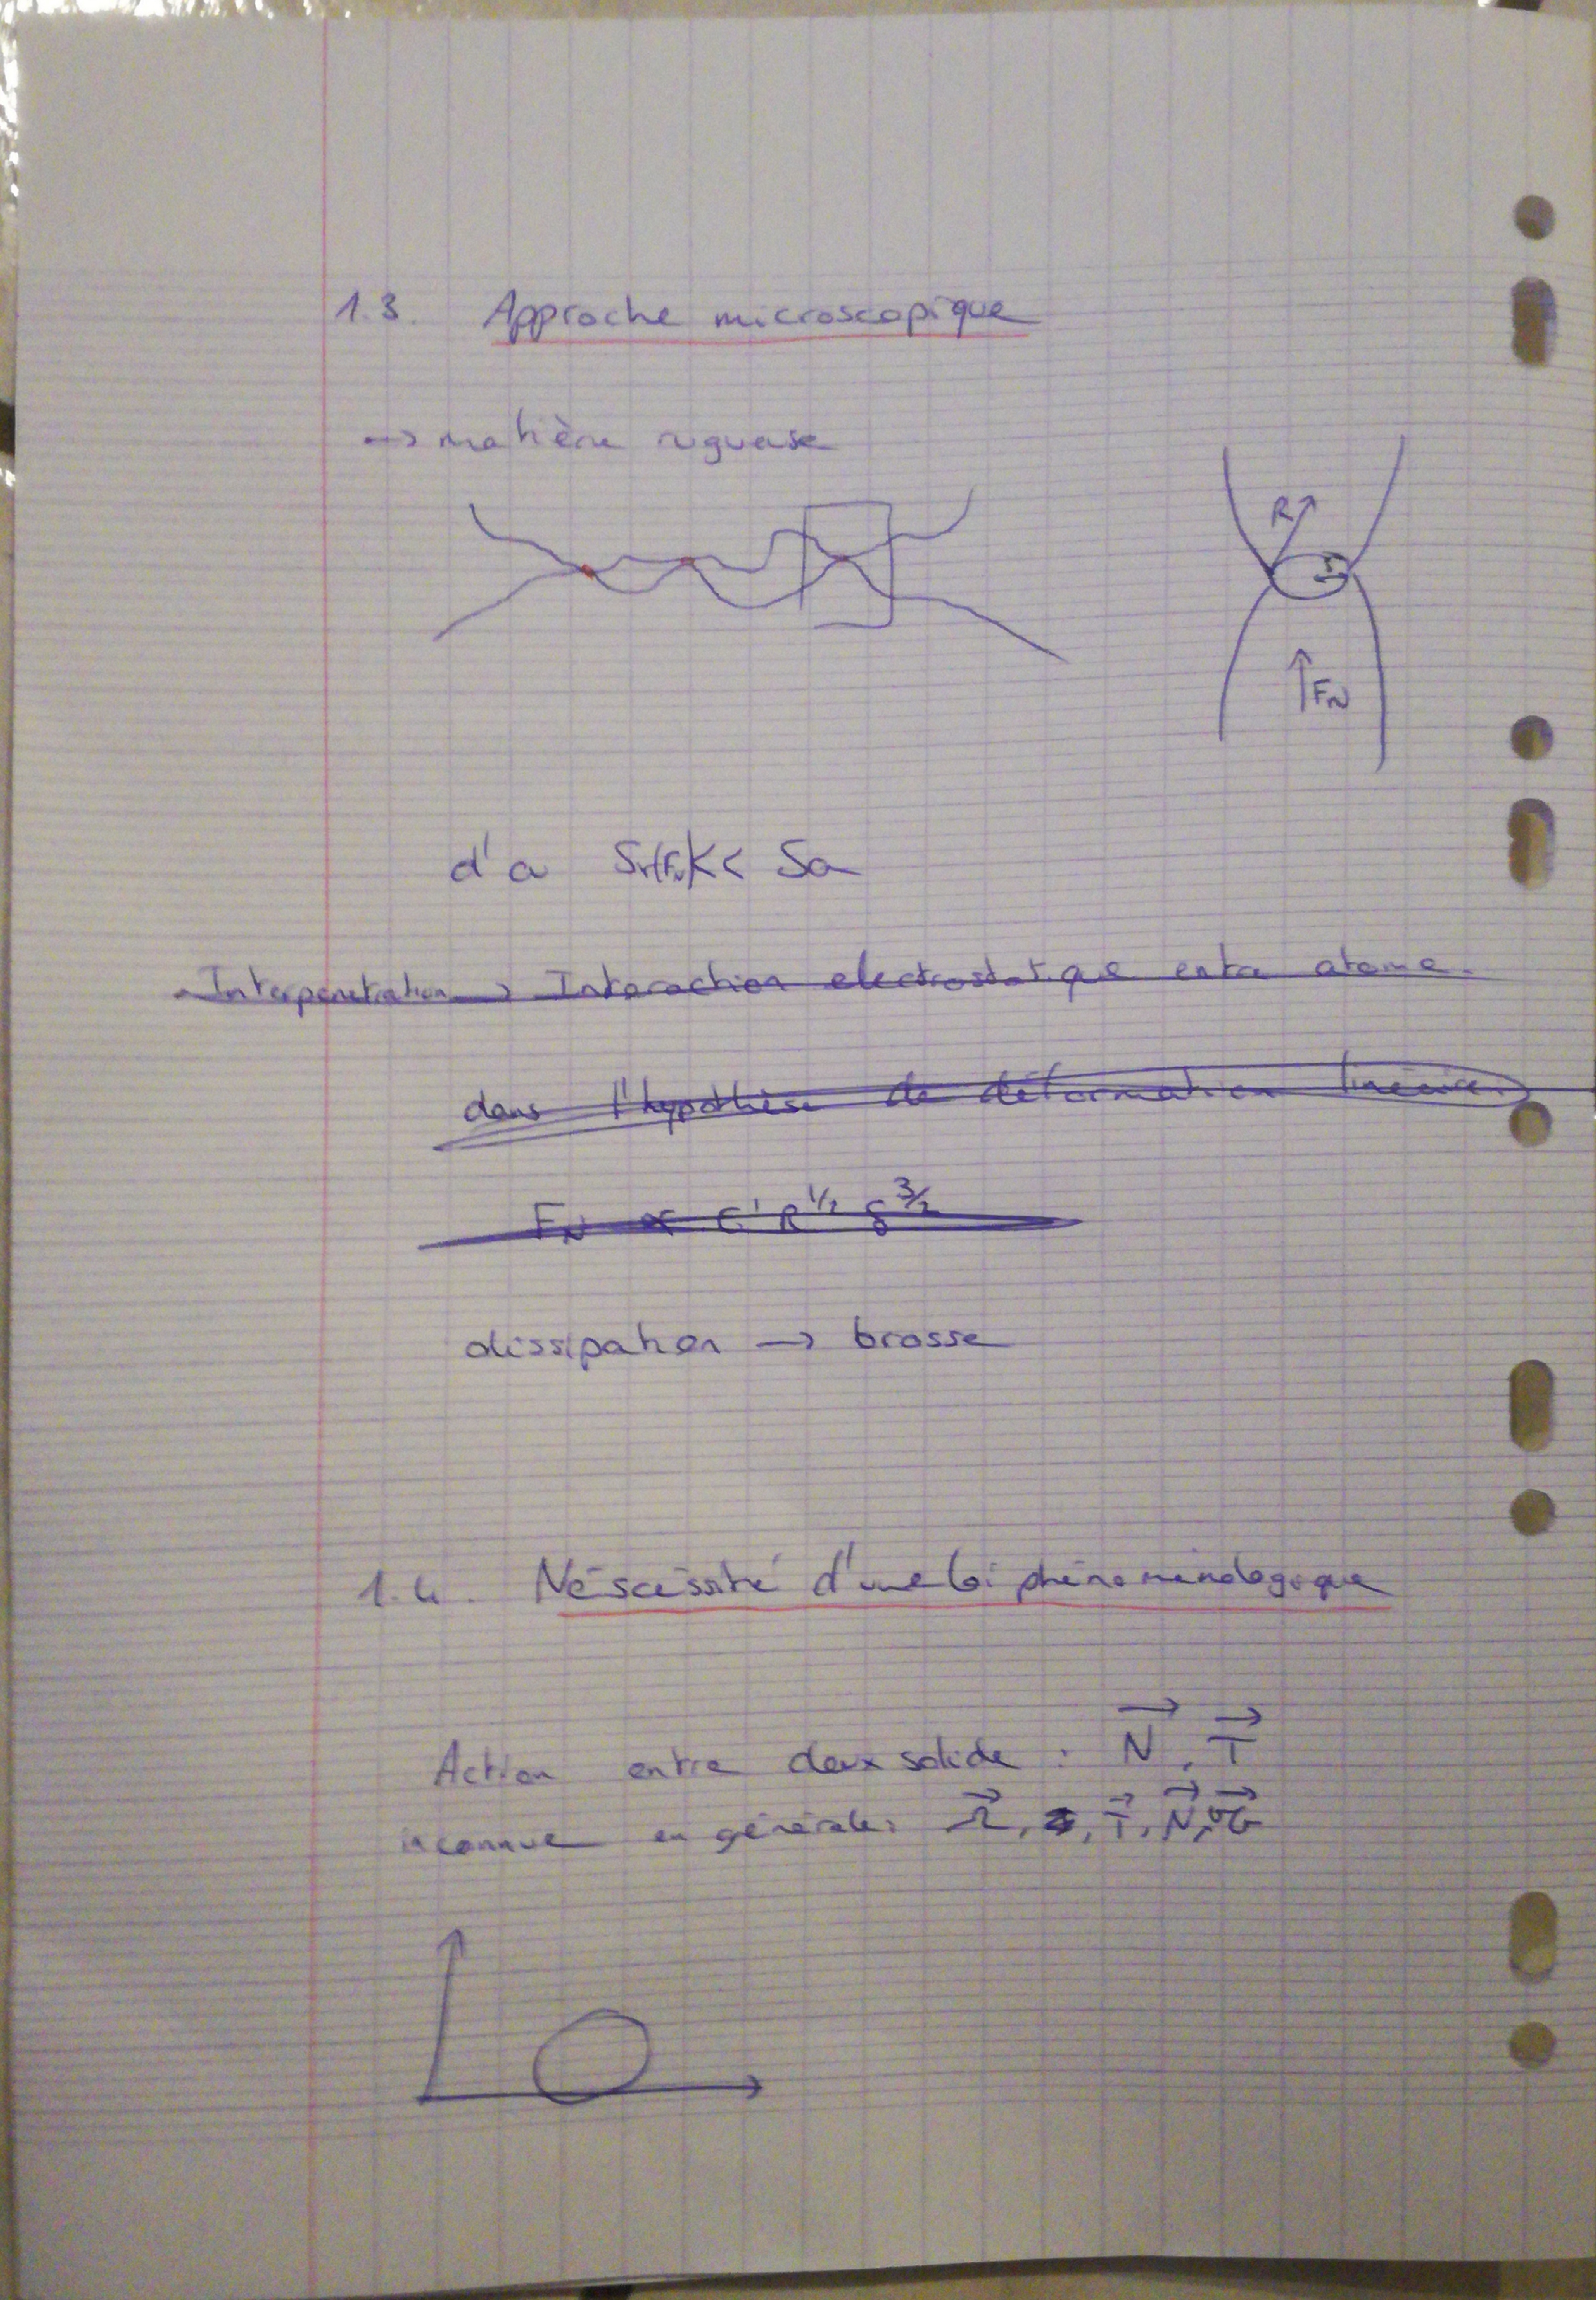 1.3. Approche microscopique
→ matière rugueuse
R
δ
F_N
d'a Sr(F_N) << Sa
Interpenetration → Interaction electrostatique entre atome.
dans l'hypothèse de déformation linéaire
F_N ∝ E' R^1/2 δ^3/2
dissipation → brosse
1.4. Néscéssité d'une loi phénoménologique
Action entre deux solide : N⃗, T⃗
inconnue en générale: Ω⃗, T⃗, N⃗,